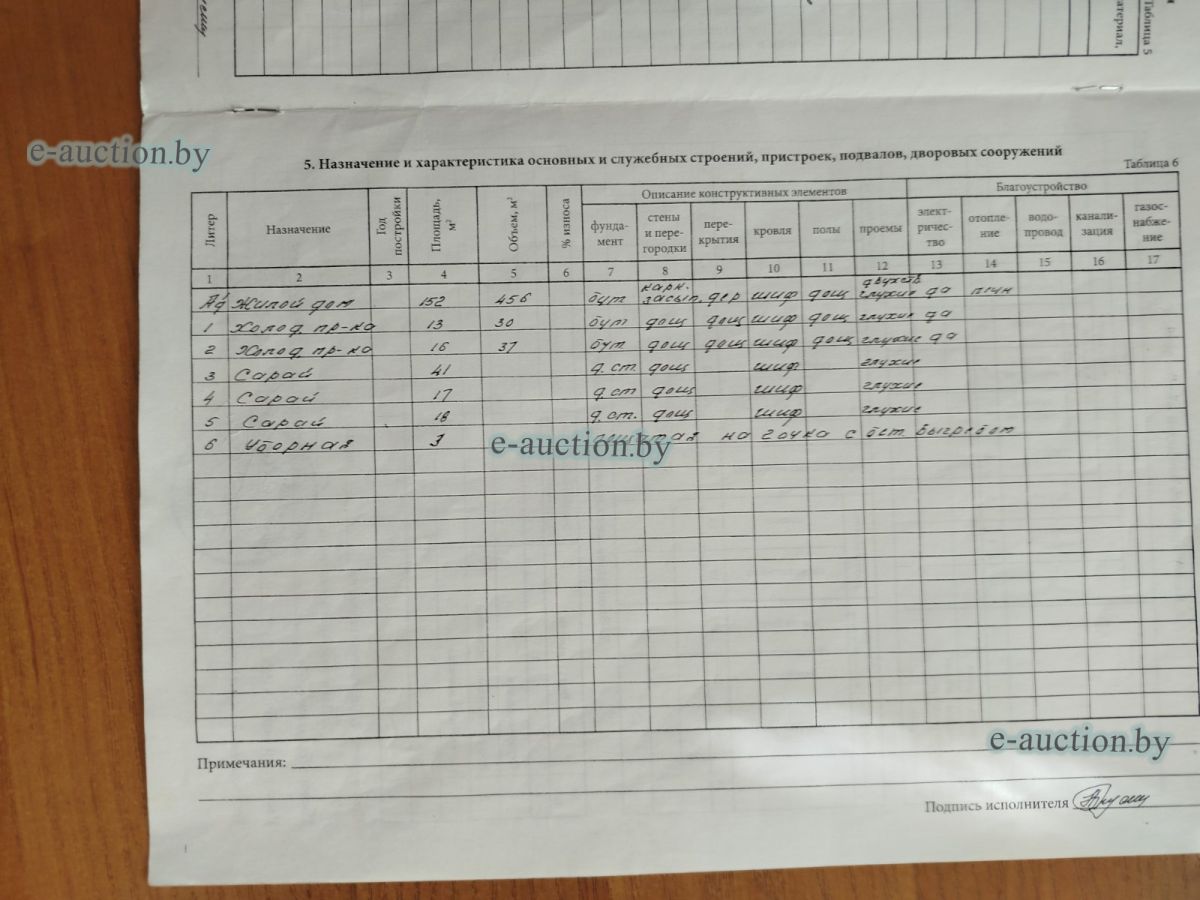 Таблица 5
атериал.
e-auction.by
5. Назначение и характеристика основных и служебных строений, пристроек, подвалов, дворовых сооружений
Таблица 6
Литер Назначение Год постройки Площадь, м² Объем, м³ % износа Описание конструктивных элементов Благоустройство
фунда-мент стены и пере-городки пере-крытия кровля полы проемы элект-ричес-тво отопле-ние водо-провод канали-зация газос-набже-ние
1 2 3 4 5 6 7 8 9 10 11 12 13 14 15 16 17
Жилой дом 152 456 бут карк. засып. дер шиф дощ двухств глухие да печн
1 Холод пр-ка 13 30 бут дощ дощ шиф дощ глухие да
2 Холод пр-ка 16 37 бут дощ дощ шиф дощ глухие да
3 Сарай 41 д.ст. дощ шиф глухие
4 Сарай 17 д.ст дощ шиф глухие
5 Сарай 18 д.ст. дощ шиф глухие
6 Уборная 3 на 2 очка с бет выгребом
e-auction.by
e-auction.by
Примечания:
Подпись исполнителя